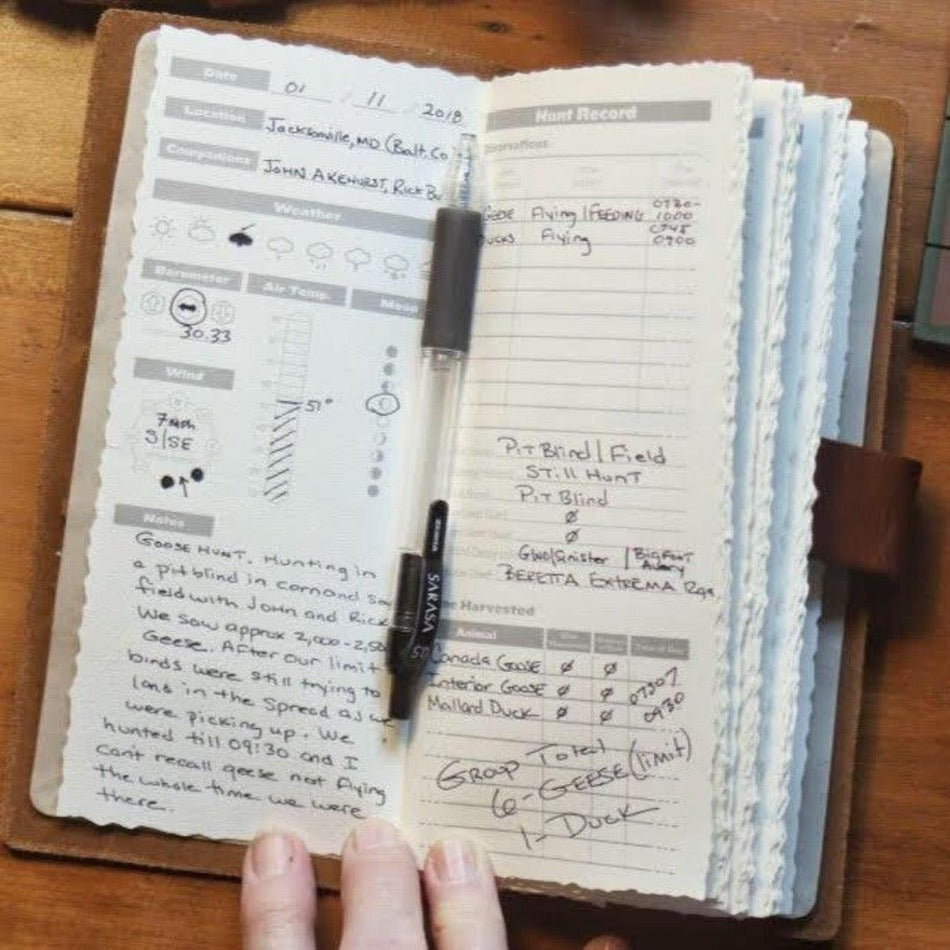 Date 01 / 11 / 2018
Location Jacksonville, MD (Balt. Co
Companions JOHN AKEHURST, RICK
Weather
Barometer Air Temp. Moon
30.33
Wind
51°
7mph
S/SE
Notes
GOOSE HUNT. HUNTING in
a pit blind in corn and
field with JOHN and RICK
We saw approx 2,000-2,50
Geese. AFTER our limit
birds were still trying to
land in the spread as we
were picking up. We
hunted till 09:30 and I
can't recall geese not flying
the whole time we were
there.
Hunt Record
Observations
GEESE Flying/FEEDING 0730-
1000
DUCKS Flying 0745
0900
PIT Blind / Field
STILL HUNT
PIT Blind
Ø
Ø
/ BIGFOOT
Avery
BERETTA EXTREMA
Harvested
Animal
Canada Goose Ø Ø
Interior Goose Ø Ø 0730?
Mallard Duck Ø Ø 0930
Total
GROUP 6-GEESE (limit)
1-DUCK
SARASA